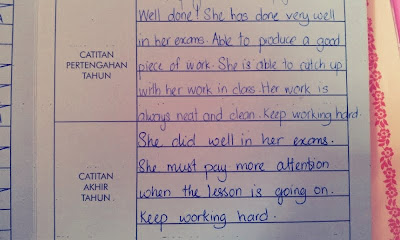 Well done! She has done very well
in her exams. Able to produce a good
CATITAN
PERTENGAHAN
TAHUN
piece of work. She is able to catch up
with her work in class. Her work is
always neat and clean. Keep working hard.
She did well in her exams.
She must pay more attention
CATITAN
AKHIR
TAHUN
when the lesson is going on.
Keep working hard.